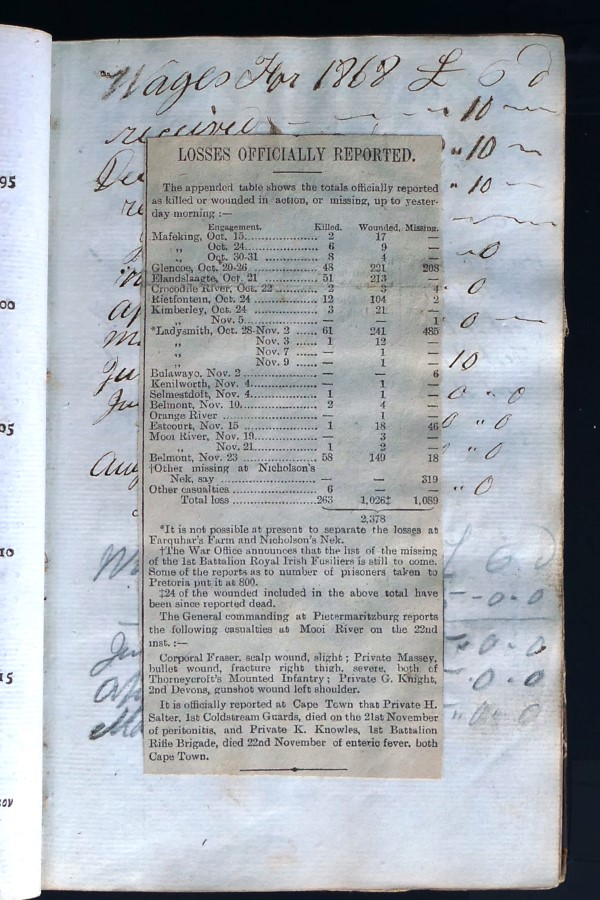 Wages For 1868 £ s d
received 10
10
10
LOSSES OFFICIALLY REPORTED.
The appended table shows the totals officially reported
as killed or wounded in action, or missing, up to yester-
day morning :—
Engagement. Killed. Wounded. Missing.
Mafeking, Oct. 15 2 17 —
„ Oct. 24 6 9 —
„ Oct. 30-31 8 4 —
Glencoe, Oct. 20-26 48 221 208
Elandslaagte, Oct. 21 51 213 —
Crocodile River, Oct. 22 2 3 4
Rietfontein, Oct. 24 12 104 2
Kimberley, Oct. 24 3 21 —
„ Nov. 5 — — 1
*Ladysmith, Oct. 28-Nov. 2 61 241 485
„ Nov. 3 1 12 —
„ Nov. 7 — 1 —
„ Nov. 9 — 1 —
Bulawayo, Nov. 2 — — 6
Kenilworth, Nov. 4 — 1 —
Selmestdoft, Nov. 4 1 1 —
Belmont, Nov. 10 2 4 —
Orange River — 1 —
Estcourt, Nov. 15 1 18 46
Mooi River, Nov. 19 — 3 —
„ Nov. 21 1 2 —
Belmont, Nov. 23 58 149 18
†Other missing at Nicholson's
Nek, say — — 319
Other casualties 6 — —
Total loss 263 1,026‡ 1,089
2,378
*It is not possible at present to separate the losses at
Farquhar's Farm and Nicholson's Nek.
†The War Office announces that the list of the missing
of the 1st Battalion Royal Irish Fusiliers is still to come.
Some of the reports as to number of prisoners taken to
Pretoria put it at 800.
‡24 of the wounded included in the above total have
been since reported dead.
The General commanding at Pietermaritzburg reports
the following casualties at Mooi River on the 22nd
inst. :—
Corporal Fraser, scalp wound, slight ; Private Massey,
bullet wound, fracture right thigh, severe, both of
Thorneycroft's Mounted Infantry ; Private G. Knight,
2nd Devons, gunshot wound left shoulder.
It is officially reported at Cape Town that Private H.
Salter, 1st Coldstream Guards, died on the 21st November
of peritonitis, and Private K. Knowles, 1st Battalion
Rifle Brigade, died 22nd November of enteric fever, both
Cape Town.